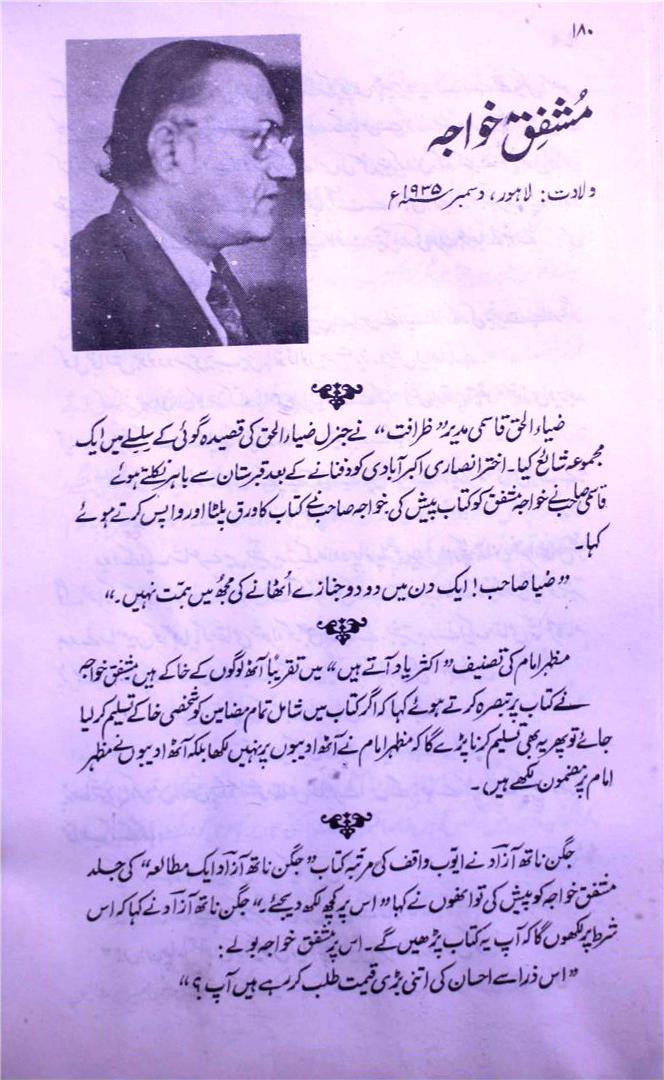 ۱۸۰
مُشفِق خواجہ
ولادت: لاہور، دسمبر ۱۹۳۵ء
ضیاء الحق قاسمی مدیر ”ظرافت“ نے جنرل ضیاء الحق کی قصیدہ گوئی کے سلسلے میں ایک
مجموعہ شائع کیا۔ اختر انصاری اکبر آبادی کو دفنانے کے بعد قبرستان سے باہر نکلتے ہوئے
قاسمی صاحب نے خواجہ مشفق کو کتاب پیش کی، خواجہ صاحب نے کتاب کا ورق پلٹا اور واپس کرتے ہوئے
کہا۔
”ضیا صاحب! ایک دن میں دو دو جنازے اُٹھانے کی مجھ میں ہمّت نہیں۔“
مظہر امام کی تصنیف ”اکثر یاد آتے ہیں“ میں تقریباً آٹھ لوگوں کے خاکے ہیں مشفق خواجہ
نے کتاب پر تبصرہ کرتے ہوئے کہا کہ اگر کتاب میں شامل تمام مضامین کو شخصی خاکے تسلیم کر لیا
جائے تو پھر یہ بھی تسلیم کرنا پڑے گا کہ مظہر امام نے آٹھ ادیبوں پر نہیں لکھا بلکہ آٹھ ادیبوں نے مظہر
امام پر مضمون لکھے ہیں۔
جگن ناتھ آزاد نے ایوب واقف کی مرتبہ کتاب ”جگن ناتھ آزاد ایک مطالعہ“ کی جلد
مشفق خواجہ کو پیش کی تو انھوں نے کہا ”اس پر کچھ لکھ دیجئے“ جگن ناتھ آزاد نے کہا کہ اس
شرط پر لکھوں گا کہ آپ یہ کتاب پڑھیں گے۔ اس پر مشفق خواجہ بولے :
”اس ذرا سے احسان کی اتنی بڑی قیمت طلب کر رہے ہیں آپ ؟“